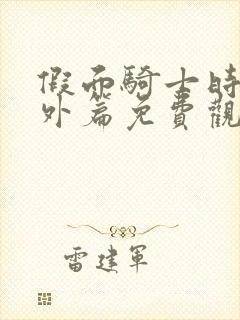 假面騎士時
外篇免費觀
雷建軍